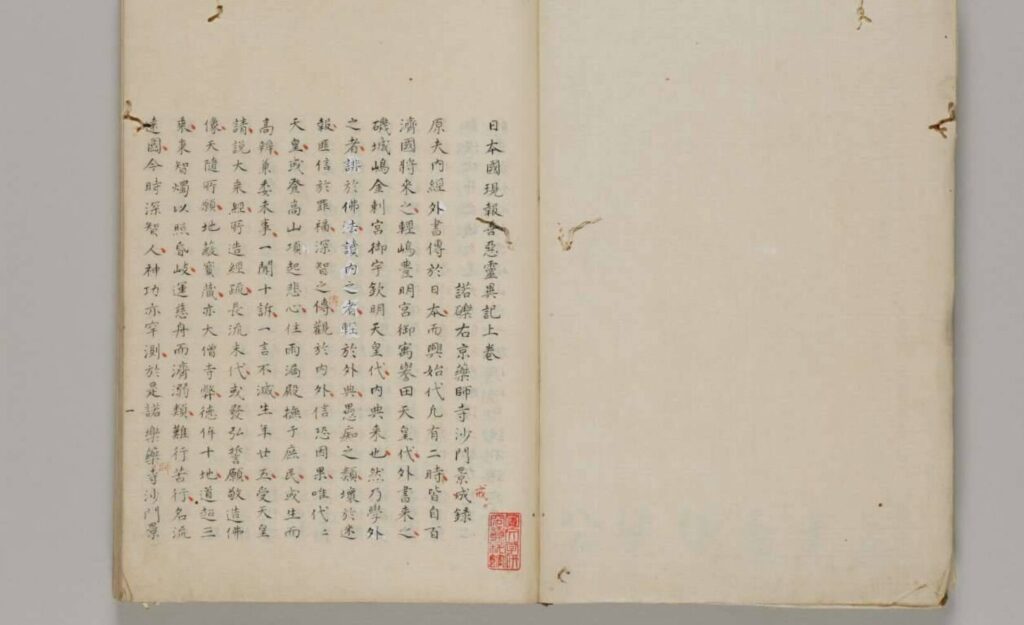 日本國現報善惡靈異記上巻
諾礫右京藥師寺沙門景成録
戒
原夫内經外書傳於日本而興始代凡有二時皆自百
濟國将来之輕嶋豊明宮御寓誉田天皇代外書来之
磯城嶋金刺宮御宇欽明天皇代内典来也然乃學外
之者誹於佛法讀内之者軽於外典愚痴之類壊於迷
報匪信於罪福深智之儔觀於内外信恐因果唯代〻
天皇或登高山頂起悲心住雨漏殿撫于庶民或生而
高辨兼委未事一聞十訴一言不減生年廿五受天皇
請説大乗經所造經疏長流末代或發弘誓願敬造佛
像天隨所願地蔵寶蔵亦大僧寺弊徳侔十地道超三
乗東智燭以照昏岐運慈舟而濟溺類難行苦行名流
遠國今時深智人神功亦罕測於是諾樂藥寺沙門景
師